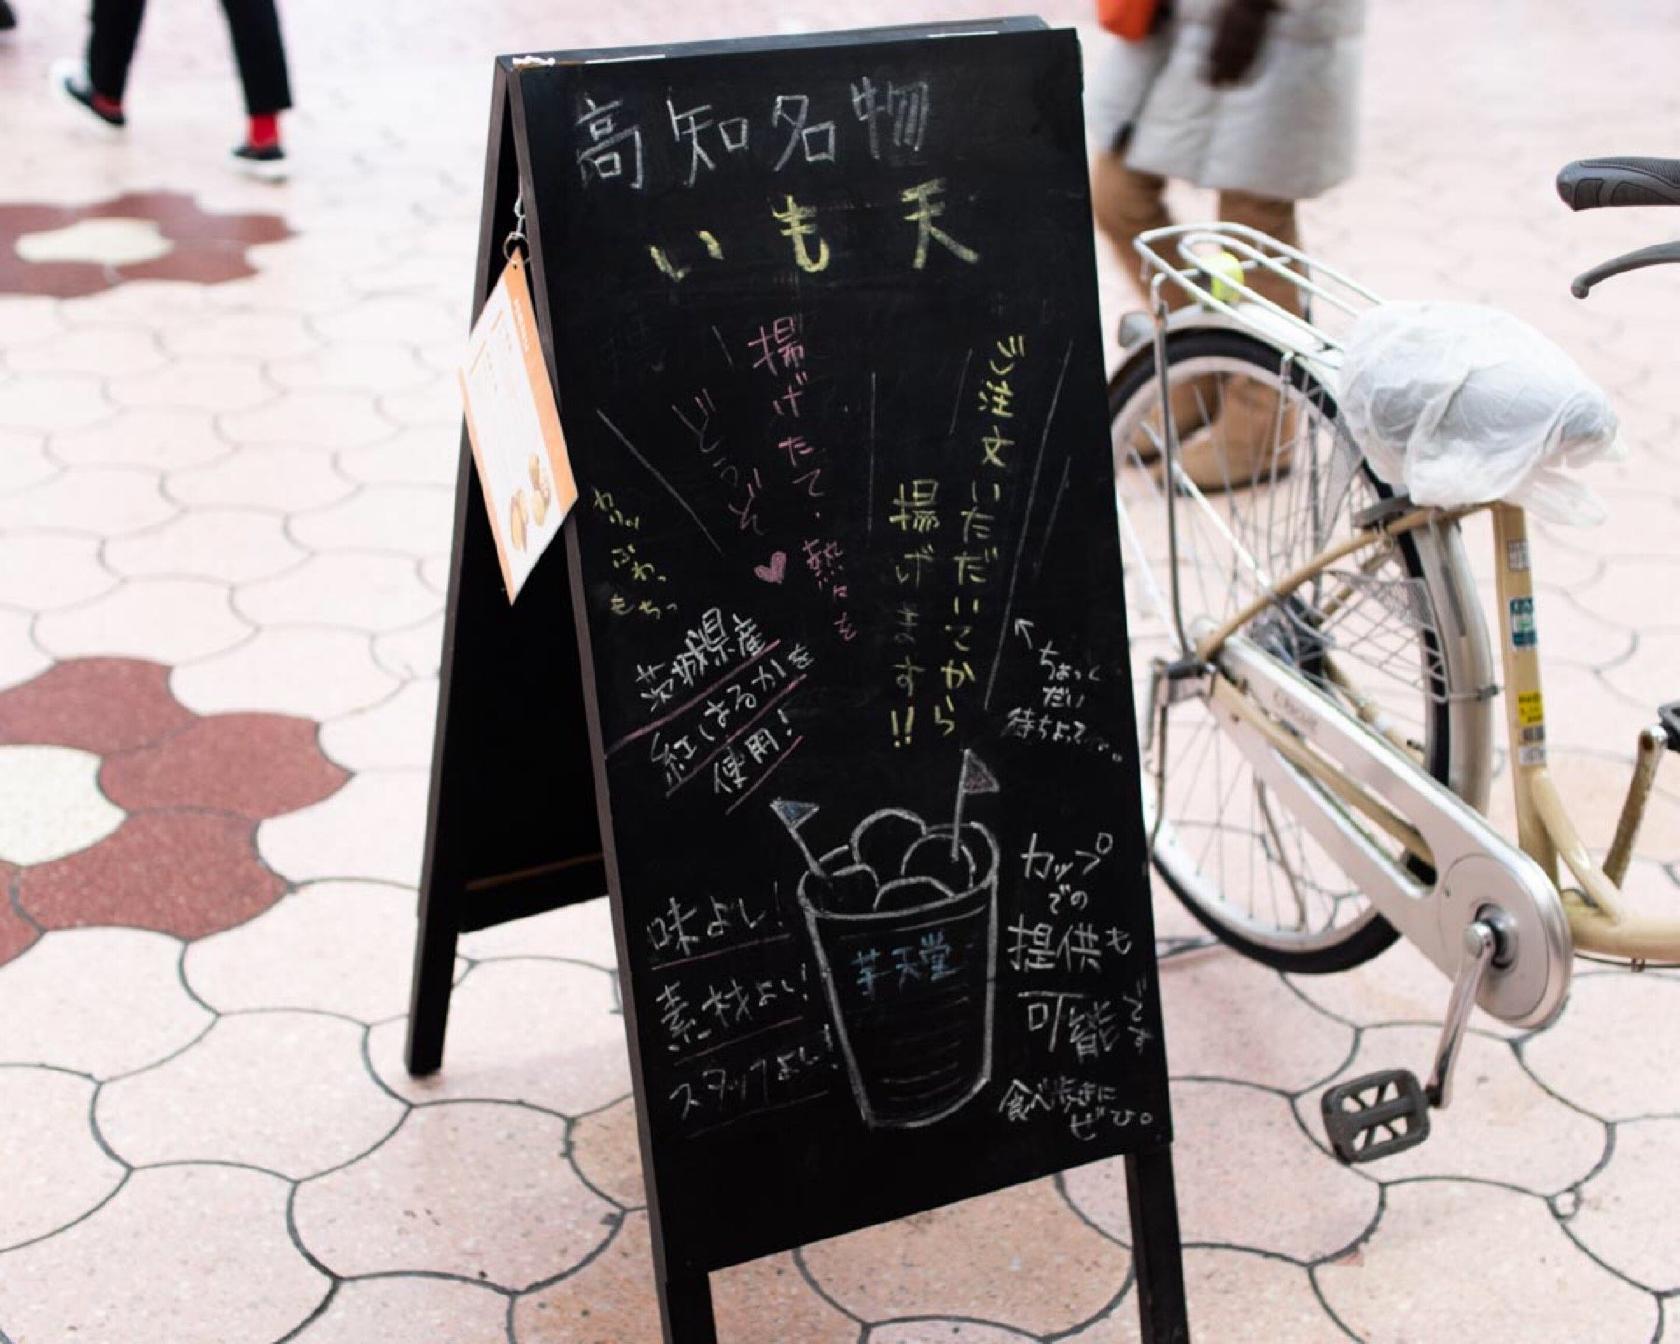 高知名物
いも天
ご注文いただいてから
揚げます!!
揚げたて、熱々を
どうぞ
ふわっ
もちっ
ちょっく
だい
待ちよってね。
茨城県産
紅はるかを
使用!
芋天堂
味よし!
素材よし!
スタッフよし!
カップ
での
提供も
可能です
食べ歩きに
ぜひ。